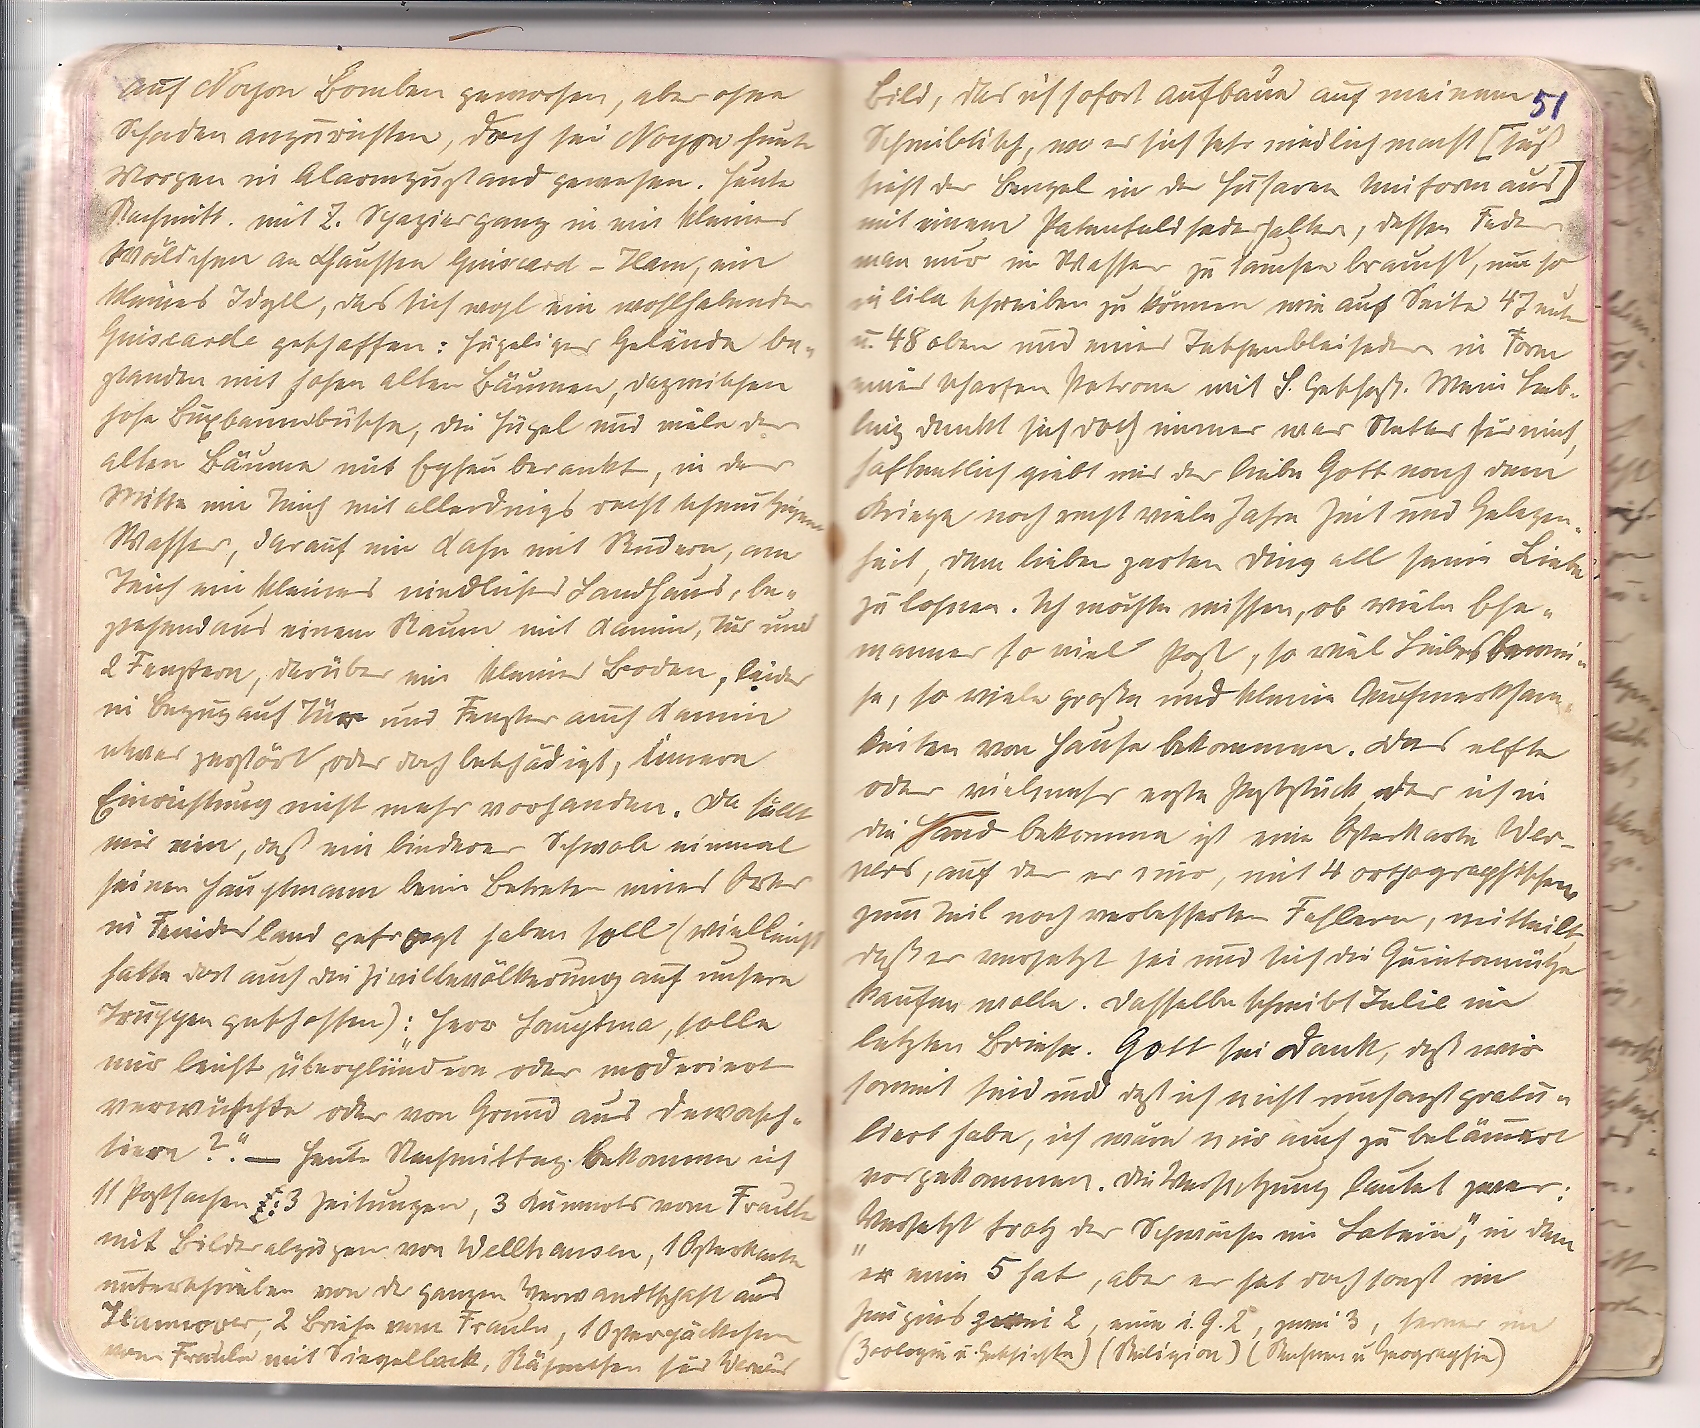 auf Noyon Bomben geworfen, aber ohne
Schaden anzurichten, doch sei Noyon heute
Morgen in Alarmzustand gewesen. Heute
Nachmitt. mit Z. Spaziergang in ein kleines
Wäldchen an Chaussee Guiscard - Ham, ein
kleines Idyll, das sich wohl ein wohlhabender
Guiscarde geschaffen: hügeliges Gelände be-
standen mit hohen alten Bäumen, dazwischen
hohe Buxbaumbüsche, die Hügel und viele der
alten Bäume mit Epheu berankt, in der
Mitte ein Teich mit allerdings recht schmutzigem
Wasser, darauf ein Kahn mit Rudern, am
Teich ein kleines niedliches Landhaus, be-
stehend aus einem Raum mit Kamin, Tür und
2 Fenstern, darüber ein kleiner Boden, leider
in Bezug auf Türe und Fenster auch Kamin
etwas zerstört, oder doch beschädigt, innere
Einrichtung nicht mehr vorhanden. Da fällt
mir ein, daß ein biederer Schwabe einmal
seinen Hauptmann beim Betreten eines Ortes
in Feindesland gefragt haben soll (vielleicht
hatte dort auch die Zivilbevölkerung auf unsere
Truppen geschossen): "Herr Hauptma, solle
mir leicht überplündere oder moderiert
verwüschte oder von Grund aus dewasch-
tiere?". — Heute Nachmittag bekomme ich
11 Postsachen: 3 Zeitungen, 3 Kuverts vom Fraule
mit Bilderabzügen von Wellhausen, 1 Osterkarte
unterschrieben von der ganzen Verwandtschaft aus
Hannover, 2 Briefe vom Fraule, 1 Osterpäckchen
vom Fraule mit Siegellack, Rähmchen für Werners
51
Bild, das ich sofort aufbaue auf meinem
Schreibtisch, wo er sich sehr niedlich macht [süß
sieht der Bengel in der Husaren Uniform aus]
mit einem Patentfeldfederhalter, dessen Feder
man nur in Wasser zu tauchen braucht, um so
in lila schreiben zu können wie auf Seite 47 unten
u. 48 oben und einer Taschenbleifeder in Form
einer scharfen Patrone mit S. Geschoß. Mein Lieb-
ling denkt sich doch immer was Nettes für mich,
hoffentlich giebt mir der liebe Gott nach dem
Kriege noch recht viele Jahre Zeit und Gelegen-
heit, dem lieben zarten Ding all seine Liebe
zu lohnen. Ich möchte wissen, ob viele Ehe-
männer so viel Post, so viel Liebesbewei-
se, so viele große und kleine Aufmerksam-
keiten von Hause bekommen. Das elfte
oder vielmehr erste Poststück das ich in
die Hand bekomme ist eine Osterkarte Wer-
ners, auf der er mir, mit 4 orthographischen
zum Teil noch verbesserten Fehlern, mitteilt,
daß er versetzt sei und sich die Quintamütze
kaufen wolle. Dasselbe schreibt Julie im
letzten Briefe. Gott sei Dank, daß wir
soweit sind und daß ich nicht umsonst gratu-
liert habe, ich wäre mir auch zu belämmert
vorgekommen. Die Versetzung lautet zwar:
"Versetzt trotz der Schwäche im Latein", in dem
er eine 5 hat, aber er hat doch sonst im
Zeugnis zwei 2, eine i. G. 2, zwei 3, ferner im
(Zoologie u. Geschichte) (Religion) (Rechnen u Geographie)